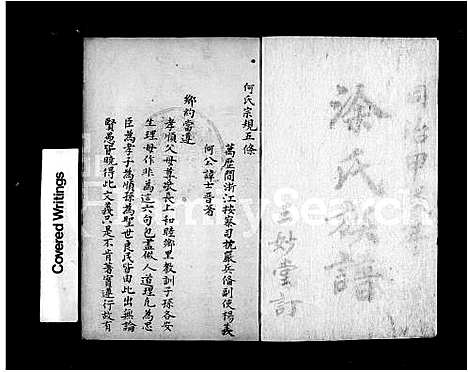 何氏宗規五條
萬歷間浙江按察司
何公諱士晋著
鄉約當遵
孝順父母尊敬長上和睦鄉里教訓子孫各安
生理毋作非為這六句包盡做人道理凡為忠
臣為孝子為順孫為聖世良民皆由此出無論
賢愚皆曉得此文義只是不肯著實遵行故有
同治甲
涂氏族譜
三妙堂訂
Covered Writings
FamilySearch